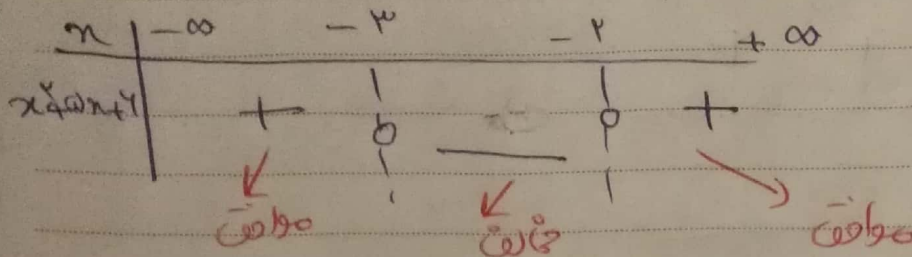 x | -∞ -۳ -۲ +∞
x²+۵x+۶ | + 0 — 0 +
موافق مخالف موافق